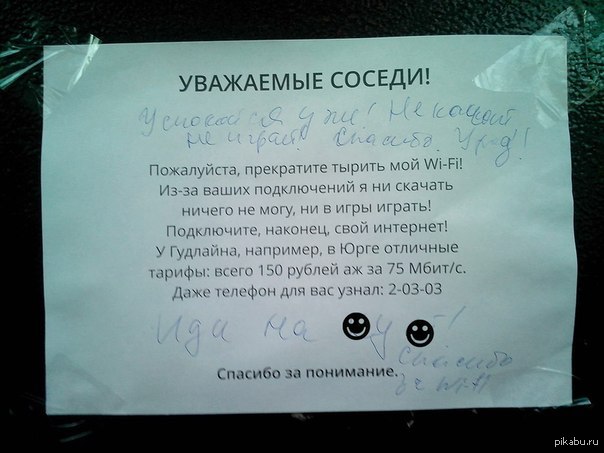 УВАЖАЕМЫЕ СОСЕДИ!
Успокойся уже! Не качай
не играй! Спасибо. Ур-д!!
Пожалуйста, прекратите тырить мой Wi-Fi!
Из-за ваших подключений я ни скачать
ничего не могу, ни в игры играть!
Подключите, наконец, свой интернет!
У Гудлайна, например, в Юрге отличные
тарифы: всего 150 рублей аж за 75 Мбит/с.
Даже телефон для вас узнал: 2-03-03
Иди на у !
Спасибо
за wi-fi
Спасибо за понимание.
pikabu.ru